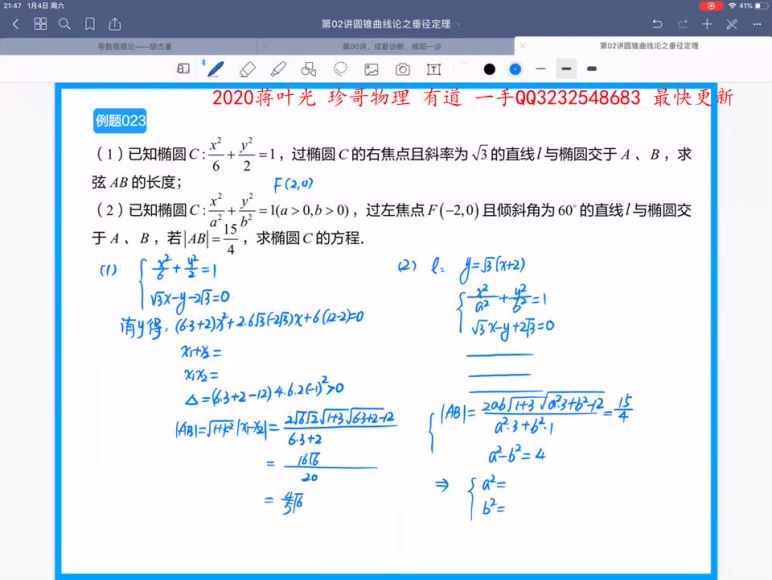 21:47 1月4日 周六
41%
第02讲圆锥曲线论之垂径定理
导数极限论——胡杰著
第00讲、成都诊断、绵阳一诊
第02讲圆锥曲线论之垂径定理
2020蒋叶光 珍哥物理 有道 一手QQ3232548683 最快更新
例题023
(1)已知椭圆 C: x²/6 + y²/2 = 1,过椭圆 C 的右焦点且斜率为 √3 的直线 l 与椭圆交于 A 、B ,求
弦 AB 的长度;
F(2,0)
(2)已知椭圆 C: x²/a² + y²/b² = 1(a > 0, b > 0) ,过左焦点 F(−2,0) 且倾斜角为 60° 的直线 l 与椭圆交
于 A 、B ,若 |AB| = 15/4 ,求椭圆 C 的方程.
(1) { x²/6 + y²/2 = 1
√3x − y − 2√3 = 0
消y得: (6·3+2)x² + 2·6√3(−2√3)x + 6(12−2) = 0
x₁+x₂ =
x₁x₂ =
Δ = (6·3+2−12) 4·6·2(−1)² > 0
|AB| = √(1+k²) |x₁−x₂| = 2√6√2√(1+3)√(6·3+2−12) / (6·3+2)
= 16√6 / 20
= 4/5 √6
(2) l: y = √3(x+2)
{ x²/a² + y²/b² = 1
√3x − y + 2√3 = 0
{ |AB| = 2ab√(1+3)√(a²·3+b²−12) / (a²·3+b²·1) = 15/4
a² − b² = 4
⇒ { a² =
b² =